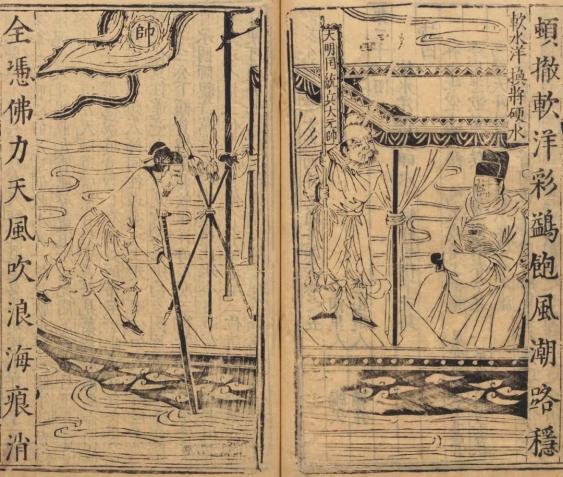 頓撤軟洋彩鷁飽風潮路穩
軟水洋換將硬水
大明国兵大元帥
帥
全憑佛力天風吹浪海痕消